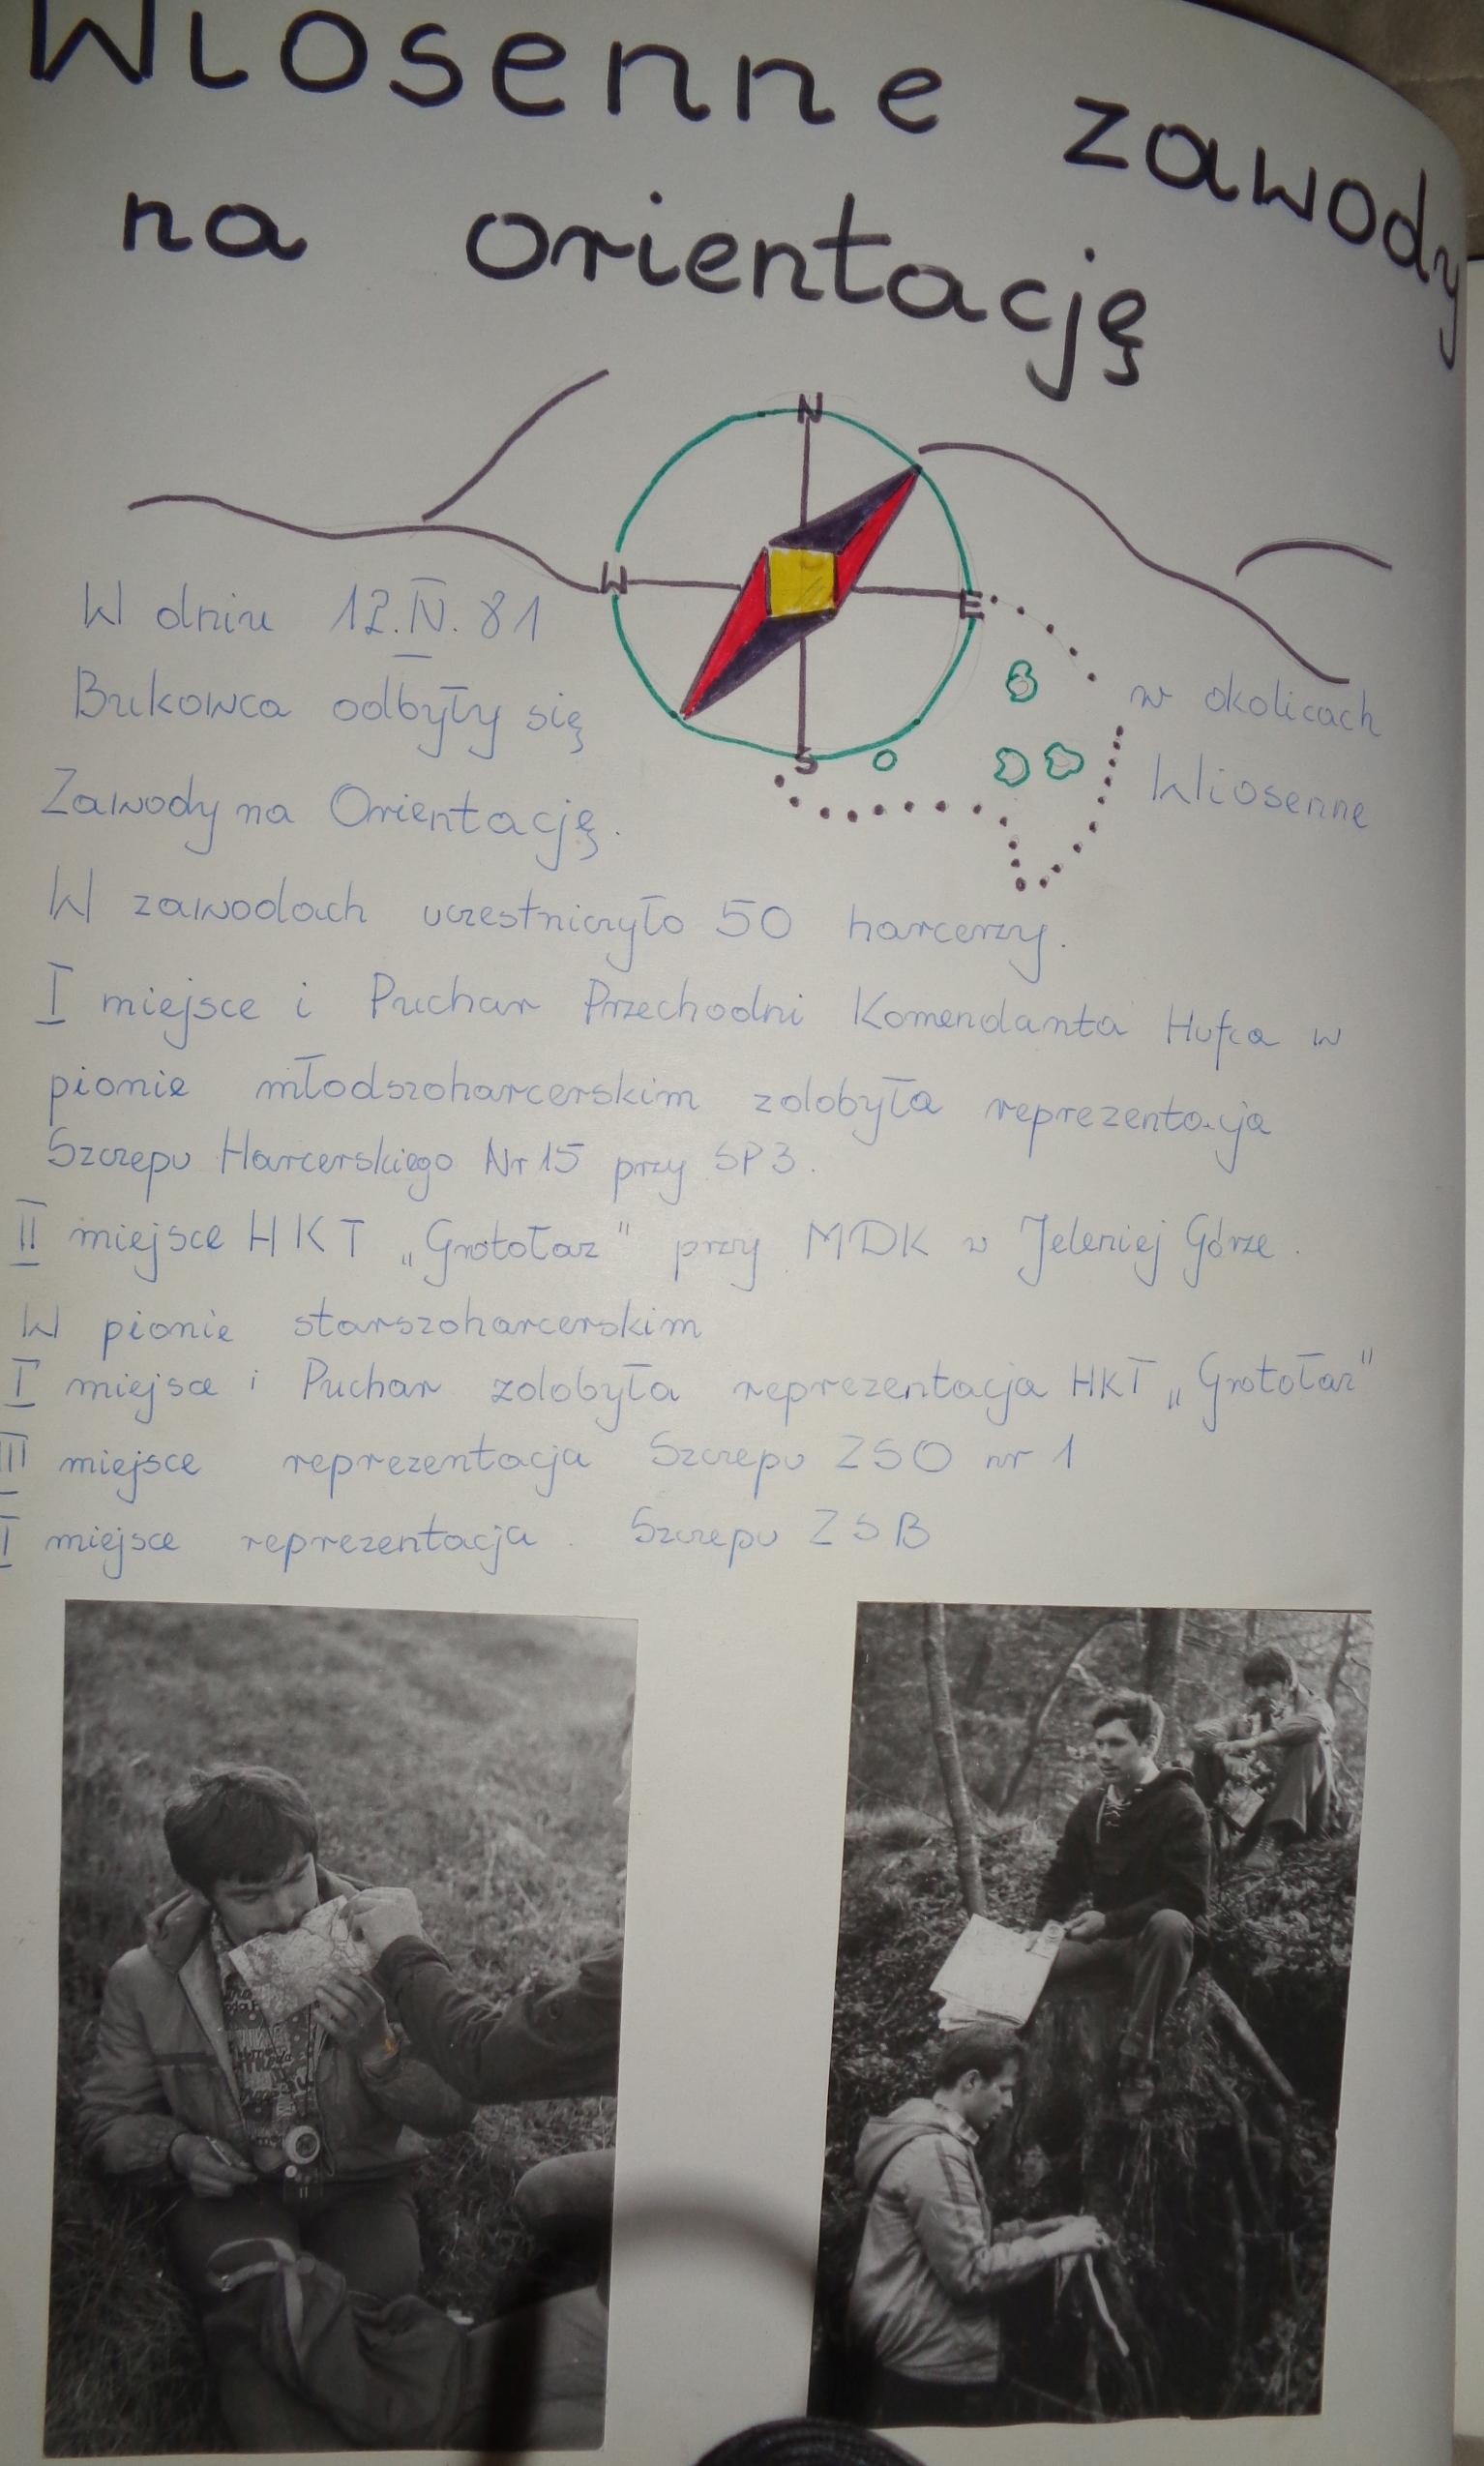 Wiosenne zawody
na orientację
N
W
E
S
W dniu 12.IV.81 w okolicach
Bukowca odbyły się Wiosenne
Zawody na Orientację.
W zawodach uczestniczyło 50 harcerzy.
I miejsce i Puchar Przechodni Komendanta Hufca w
pionie młodszoharcerskim zdobyła reprezentacja
Szczepu Harcerskiego Nr 15 przy SP3.
II miejsce HKT „Grotołaz" przy MDK w Jeleniej Górze.
W pionie starszoharcerskim
I miejsce i Puchar zdobyła reprezentacja HKT „Grotołaz"
II miejsce reprezentacja Szczepu ZSO nr 1
miejsce reprezentacja Szczepu ZSB